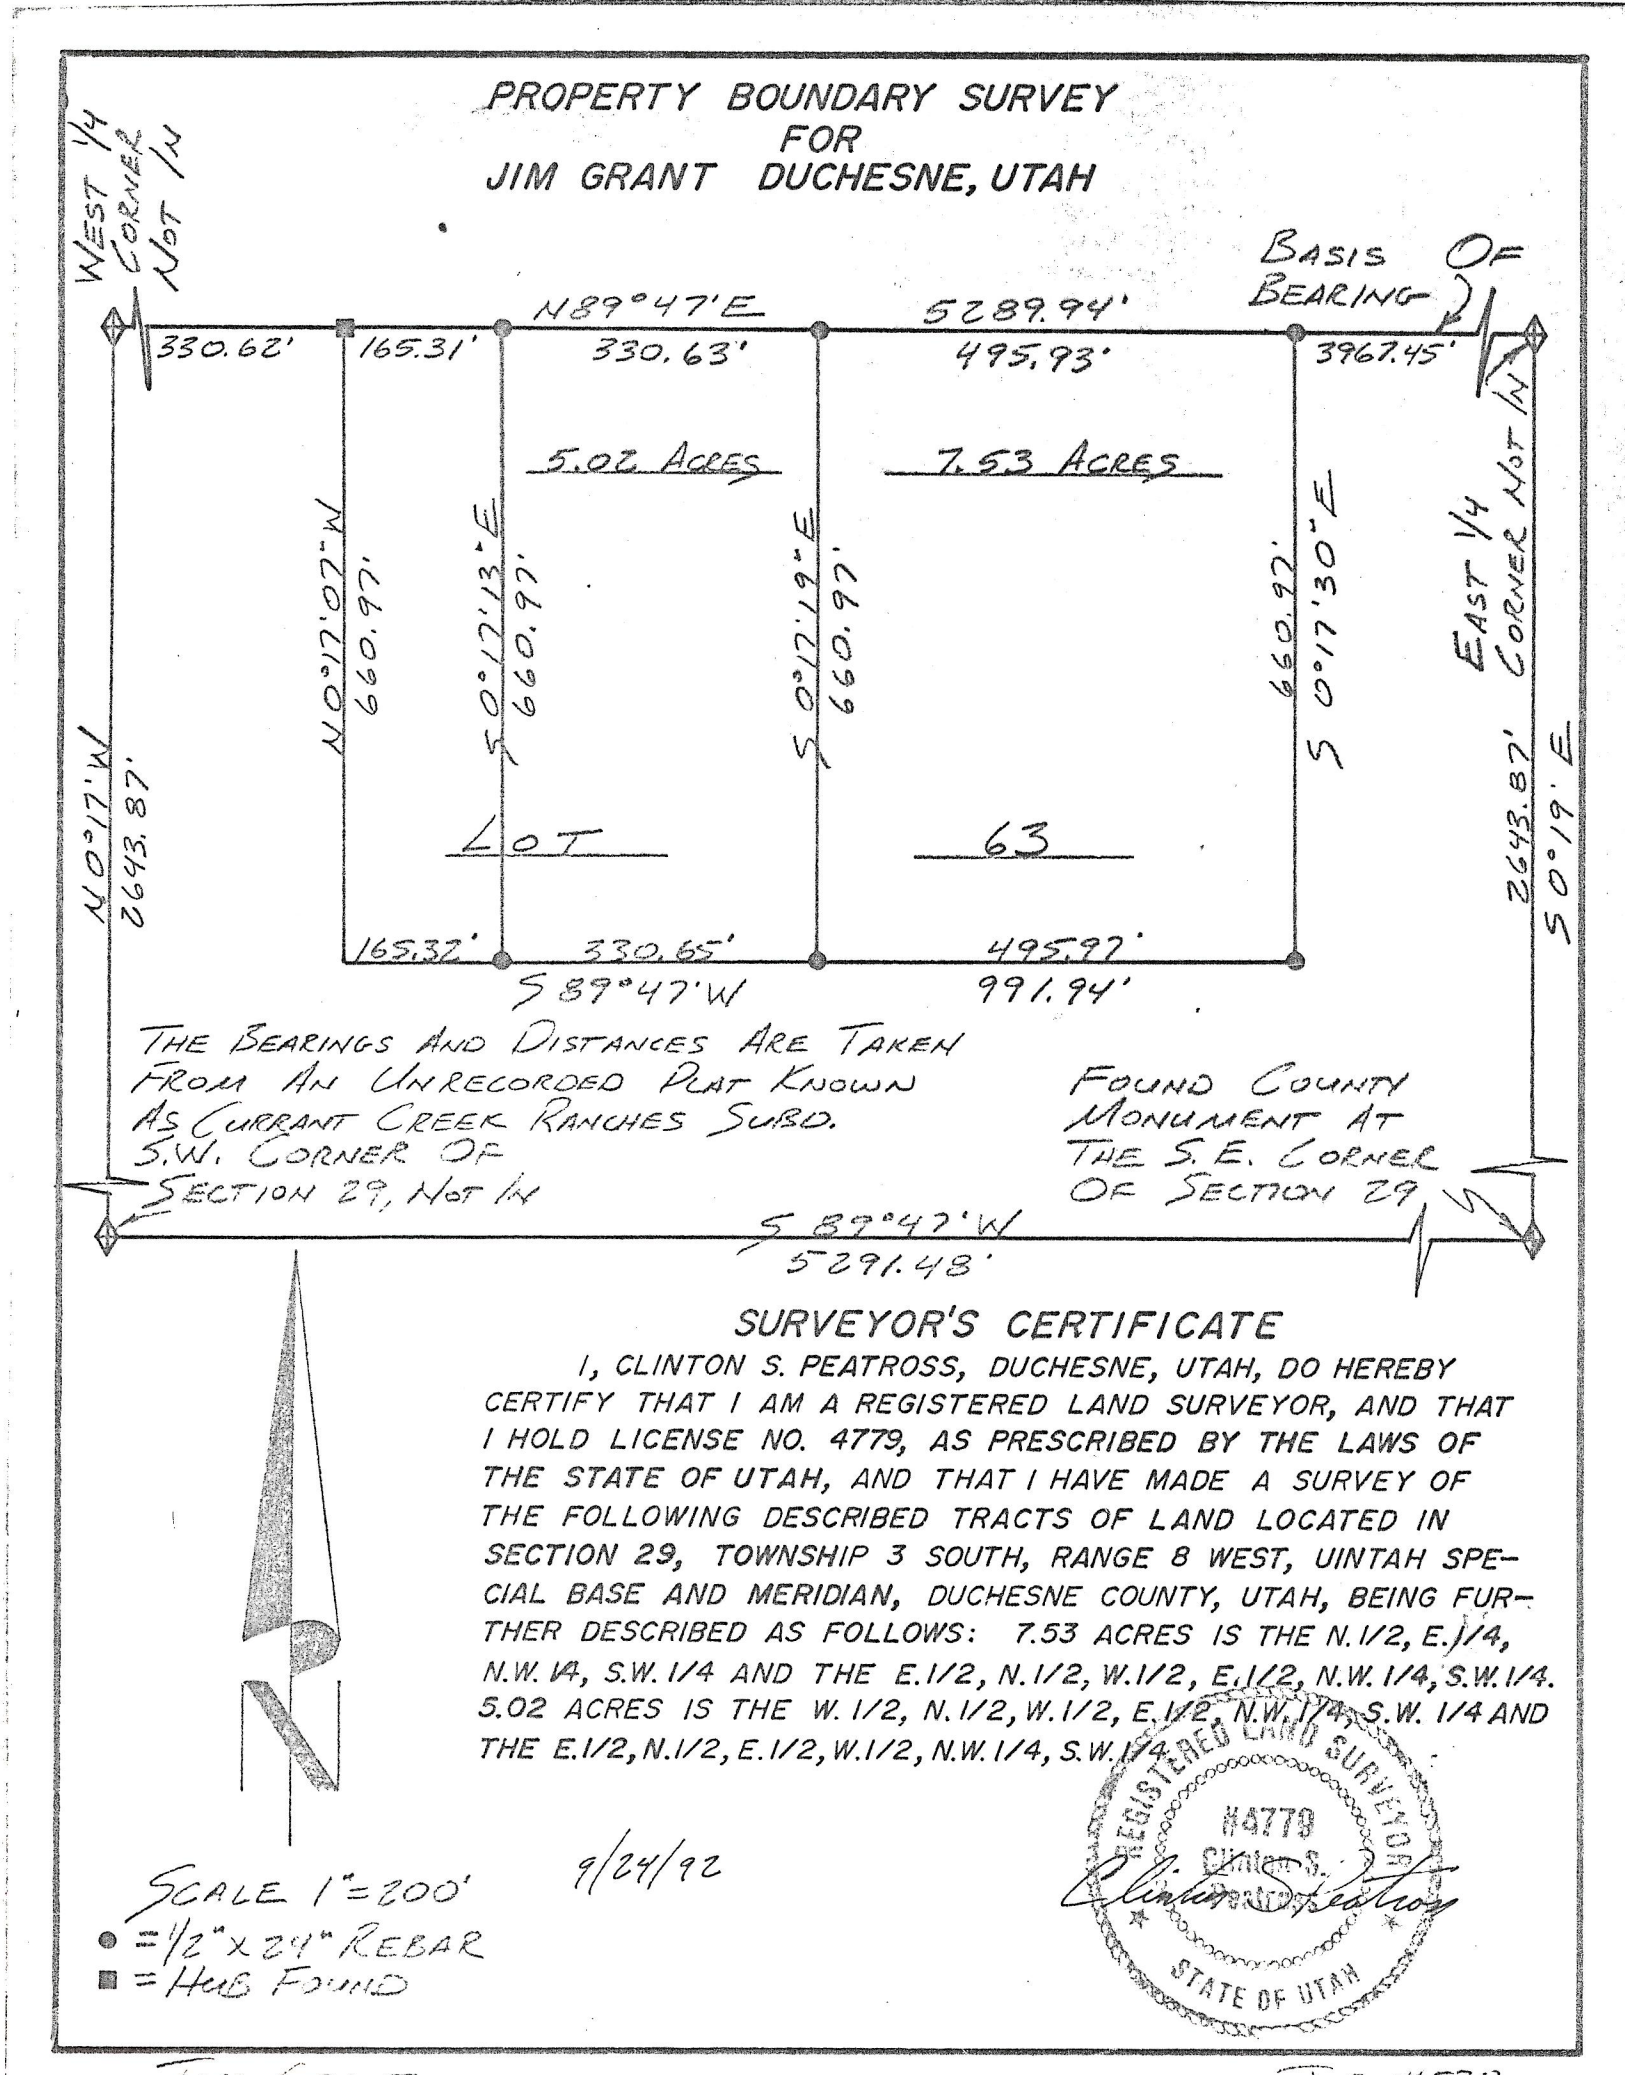 PROPERTY BOUNDARY SURVEY
FOR
JIM GRANT DUCHESNE, UTAH
WEST 1/4
CORNER
NOT IN
BASIS OF
BEARING
N89°47'E 5289.94'
330.62' 165.31' 330.63' 495.93' 3967.45'
5.02 ACRES 7.53 ACRES
N0°17'07"W
660.97'
S 0°17'13"E
660.97'
S 0°17'19"E
660.97'
660.97'
S 0°17'30"E
EAST 1/4
CORNER NOT IN
N0°17'W
2643.87'
2643.87'
S 0°19' E
LOT 63
165.32' 330.65' 495.97'
S 89°47'W 991.94'
THE BEARINGS AND DISTANCES ARE TAKEN
FROM AN UNRECORDED PLAT KNOWN
AS CURRANT CREEK RANCHES SUBD.
S.W. CORNER OF
SECTION 29, NOT IN
FOUND COUNTY
MONUMENT AT
THE S.E. CORNER
OF SECTION 29
S 89°47'W
5291.48'
SURVEYOR'S CERTIFICATE
I, CLINTON S. PEATROSS, DUCHESNE, UTAH, DO HEREBY
CERTIFY THAT I AM A REGISTERED LAND SURVEYOR, AND THAT
I HOLD LICENSE NO. 4779, AS PRESCRIBED BY THE LAWS OF
THE STATE OF UTAH, AND THAT I HAVE MADE A SURVEY OF
THE FOLLOWING DESCRIBED TRACTS OF LAND LOCATED IN
SECTION 29, TOWNSHIP 3 SOUTH, RANGE 8 WEST, UINTAH SPE-
CIAL BASE AND MERIDIAN, DUCHESNE COUNTY, UTAH, BEING FUR-
THER DESCRIBED AS FOLLOWS: 7.53 ACRES IS THE N.1/2, E.1/4,
N.W. 1/4, S.W. 1/4 AND THE E.1/2, N.1/2, W.1/2, E.1/2, N.W. 1/4, S.W. 1/4.
5.02 ACRES IS THE W. 1/2, N. 1/2, W. 1/2, E. 1/2, N.W. 1/4, S.W. 1/4 AND
THE E.1/2, N.1/2, E.1/2, W.1/2, N.W. 1/4, S.W. 1/4.
N
9/24/92
SCALE 1"=200'
= 1/2" X 24" REBAR
= HUB FOUND
REGISTERED LAND SURVEYOR
#4779
Clinton S.
Peatross
Clinton S Peatross
STATE OF UTAH